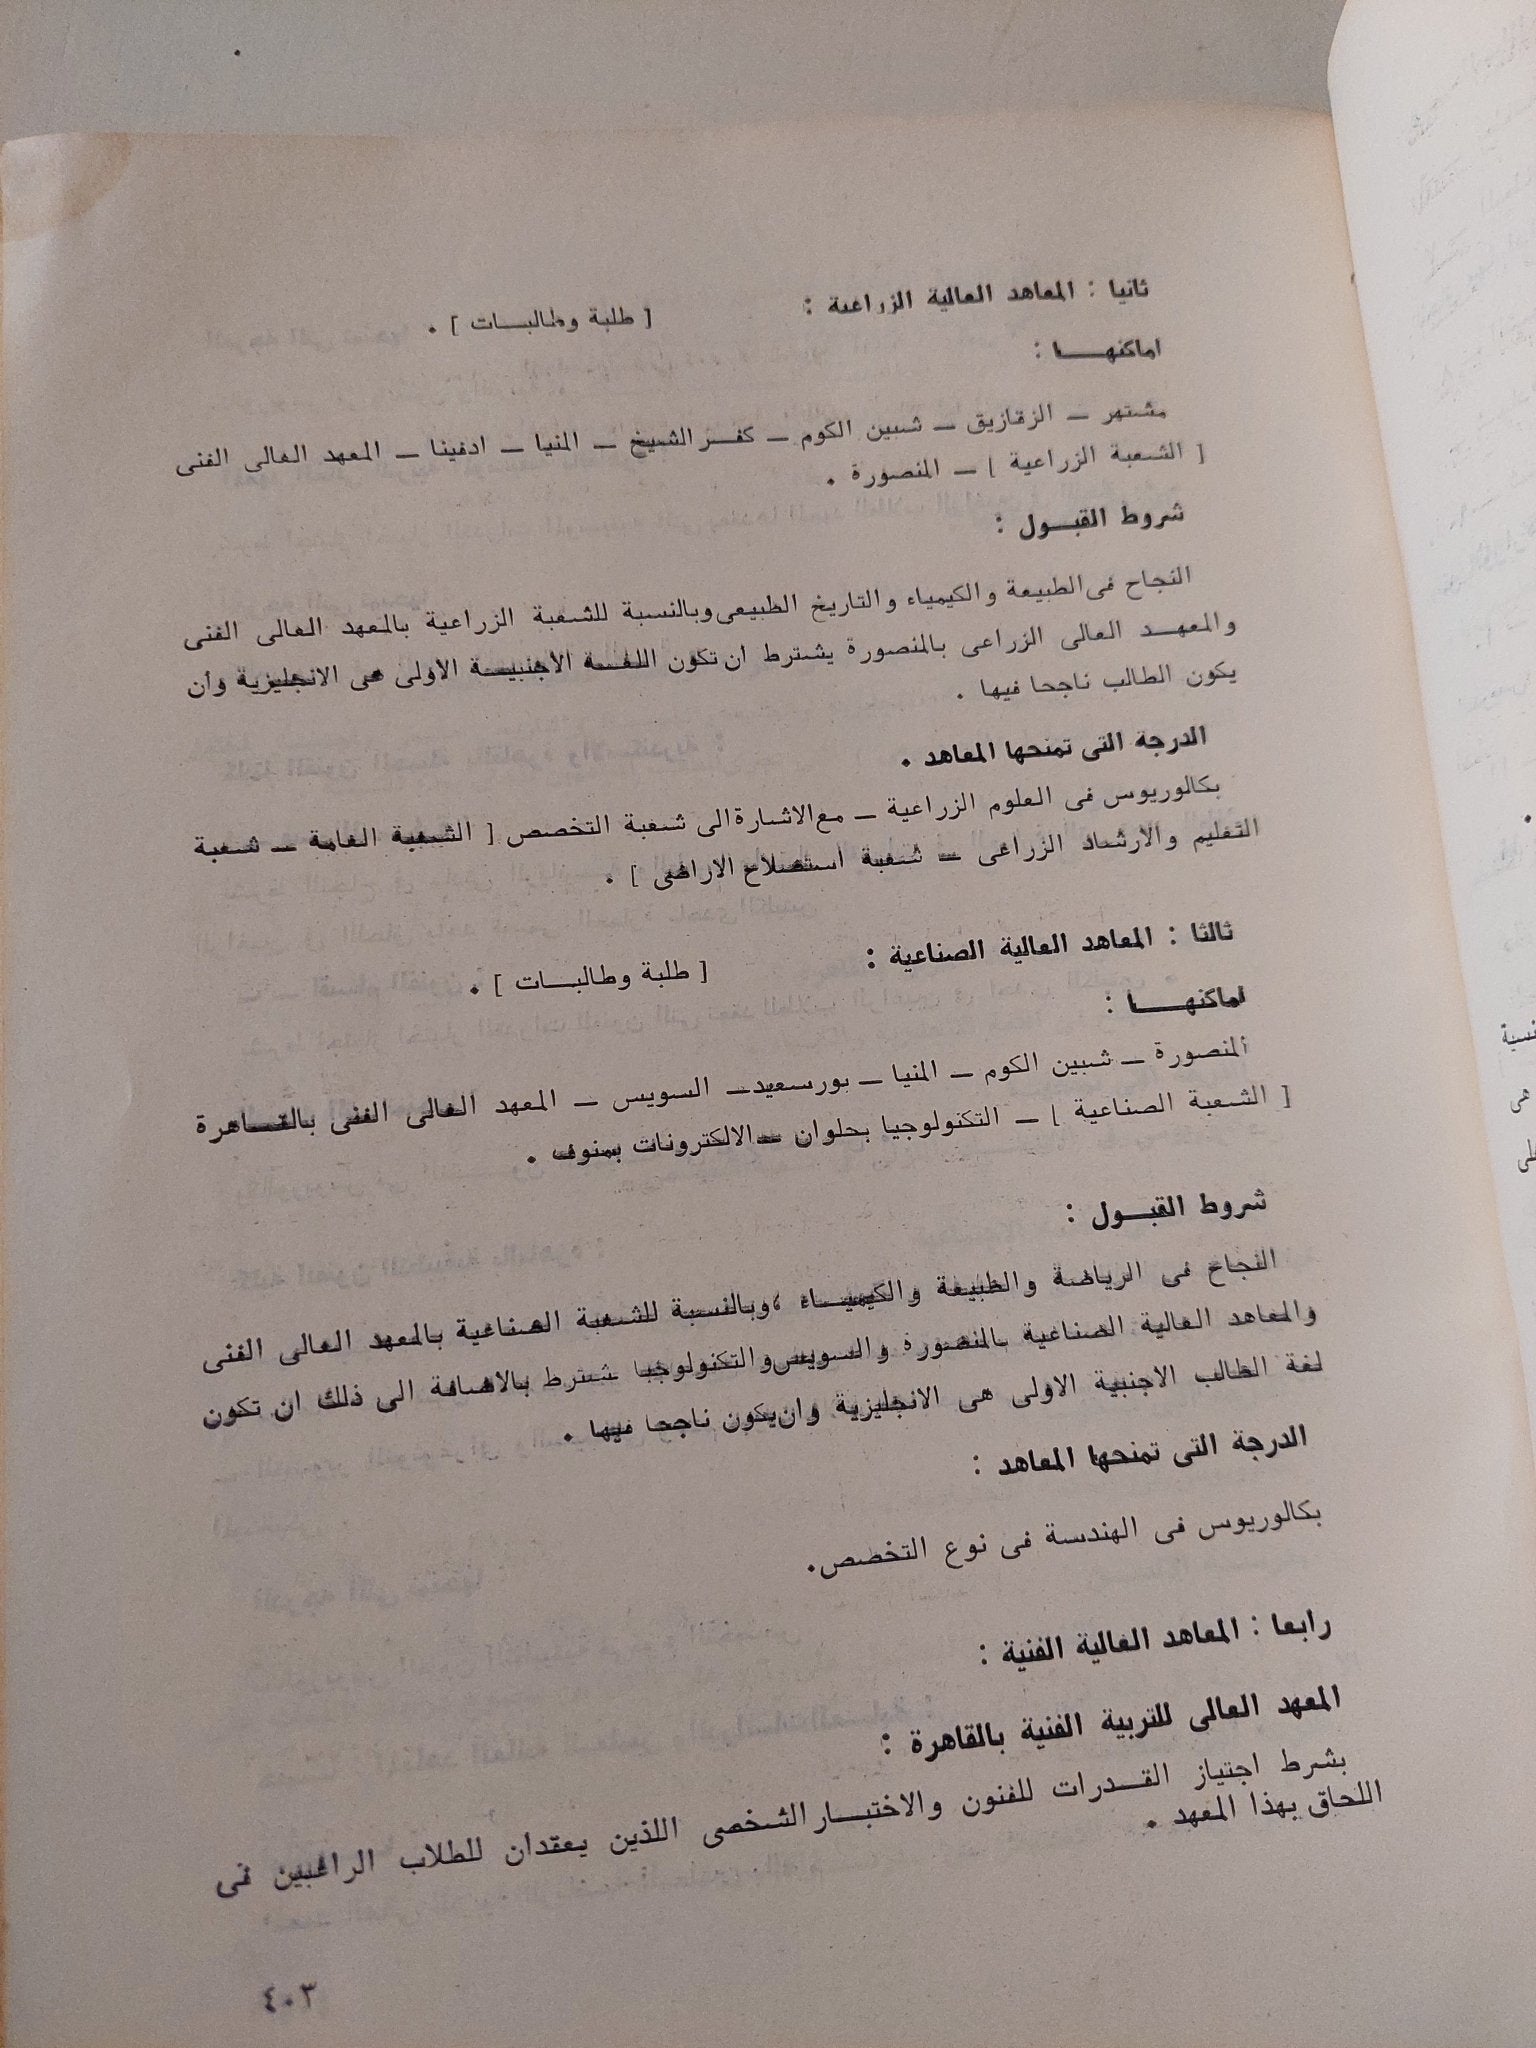 ثانيا : المعاهد العالية الزراعية : [ طلبة وطالبـــات ] .
اماكنهـــــا :
مشتهر — الزقازيق — شبين الكوم — كفـر الشيخ — المنيا — ادفينا — المعهد العالى الفنى
[ الشعبة الزراعية ] — المنصورة .
شروط القبـــول :
النجاح فى الطبيعة والكيمياء والتاريخ الطبيعى وبالنسبة للشعبة الزراعية بالمعهد العالى الفنى
والمعهـــد العالى الزراعى بالمنصورة يشترط ان تكون اللغـــة الاجنبيـــة الاولى هى الانجليزية وان
يكون الطالب ناجحا فيها .
الدرجة التى تمنحها المعاهد .
بكالوريوس فى العلوم الزراعية — مع الاشارة الى شعبة التخصص [ الشعبة العامة — شعبة
التعليم والارشاد الزراعى — شعبة استصلاح الاراضى ] .
ثالثا : المعاهد العالية الصناعية : [ طلبة وطالبـــات ] .
اماكنهـــــا :
المنصورة — شبين الكوم — المنيا — بورسعيد — السويس — المعهد العالى الفنى بالقـــاهرة
[ الشعبة الصناعية ] — التكنولوجيا بحلوان — الالكترونات بمنوف .
شروط القبـــول :
النجاح فى الرياضة والطبيعة والكيميـــاء ، وبالنسبة للشعبة الصناعية بالمعهد العالى الفنى
والمعاهد العالية الصناعية بالمنصورة والسويس والتكنولوجيا شترط بالاضافة الى ذلك ان تكون
لغة الطالب الاجنبية الاولى هى الانجليزية وان يكون ناجحا فيها .
الدرجة التى تمنحها المعاهد :
بكالوريوس فى الهندسة فى نوع التخصص .
رابعا : المعاهد العالية الفنية :
المعهد العالى للتربية الفنية بالقاهرة :
بشرط اجتياز القـــدرات للفنون والاختبـــار الشخصى اللذين يعقدان للطلاب الراغبين فى
اللحاق بهذا المعهد .
٤٠٣
هى